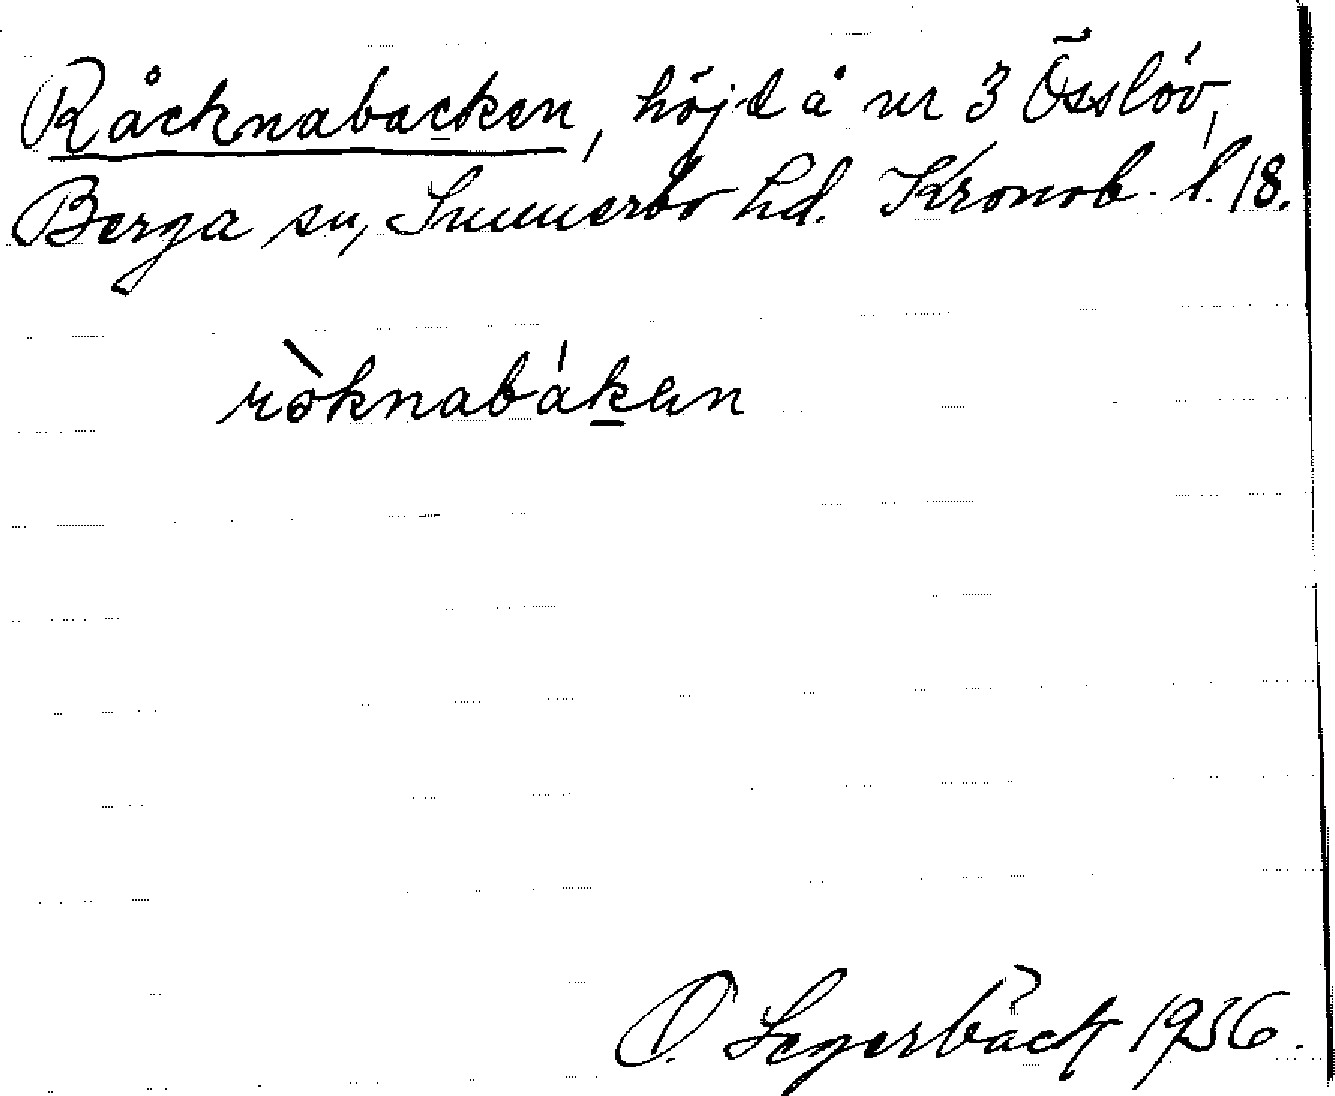 Råcknabacken, höjd å nr 3 Össlöv,
Berga sn, Sunnerbo hd. Kronob. l. 18.
ròknabákan
O. Segerbäck 1936.